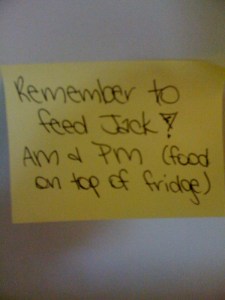 Remember to
feed Jack!
AM & PM (food
on top of fridge)